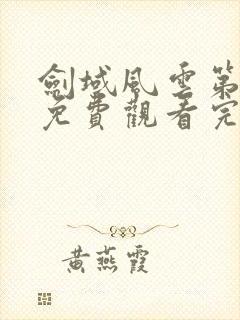 劍域風雲第
免費觀看完
黃燕霞